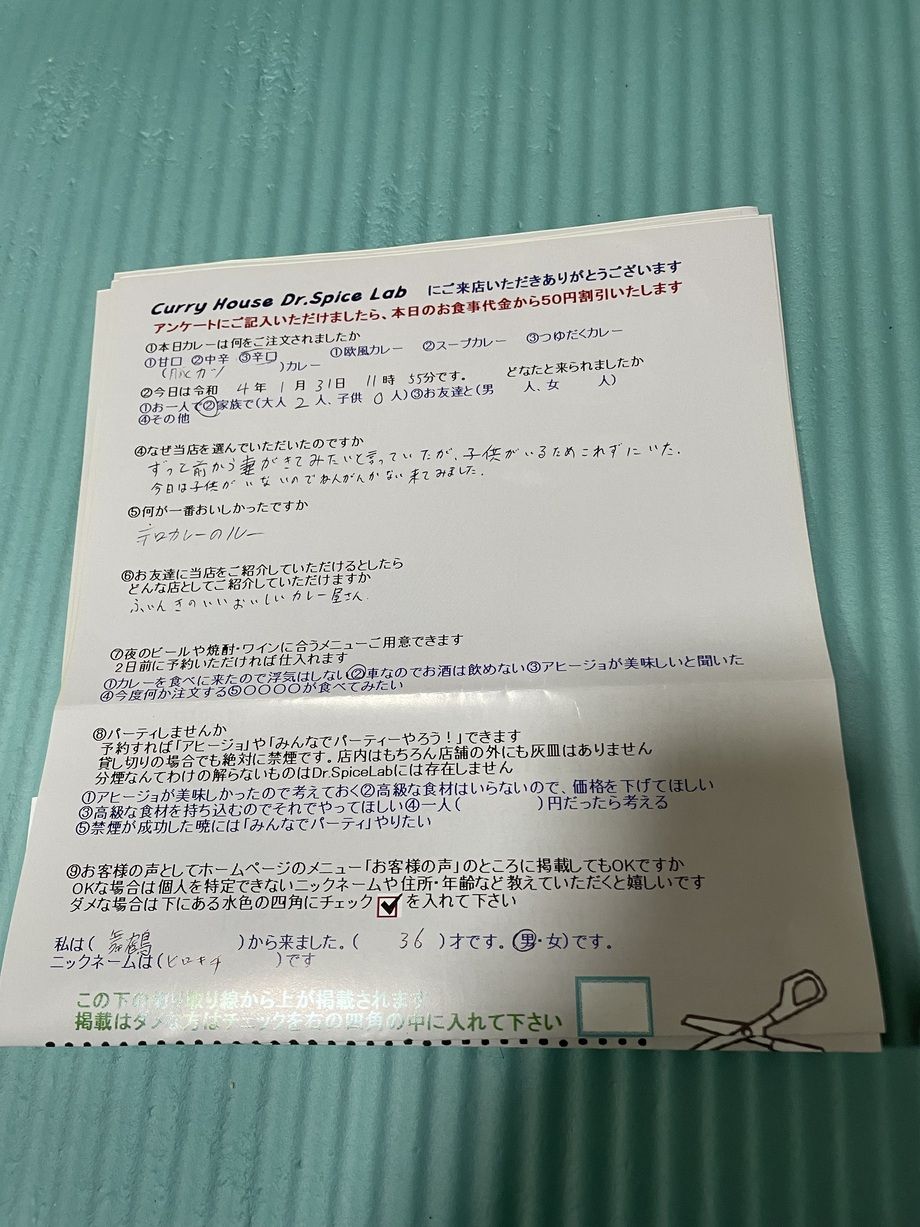 Curry House Dr.Spice Lab にご来店いただきありがとうございます
アンケートにご記入いただけましたら、本日のお食事代金から50円割引いたします
①本日カレーは何をご注文されましたか
①甘口 ②中辛 ③辛口 ①欧風カレー ②スープカレー ③つゆだくカレー
( カツ )カレー
②今日は令和 4年 1月 31日 11時 55分です。 どなたと来られましたか
①お一人で②家族で(大人 2人、子供 0人)③お友達と(男 人、女 人)
④その他
④なぜ当店を選んでいただいたのですか
ずっと前から妻がきてみたいと言っていたが、子供がいるためこれずにいた。
今日は子供がいないのでねんがんかない来てみました。
⑤何が一番おいしかったですか
辛口カレーのルー
⑥お友達に当店をご紹介していただけるとしたら
どんな店としてご紹介していただけますか
ふいんきのいいおいしいカレー屋さん
⑦夜のビールや焼酎・ワインに合うメニューご用意できます
2日前に予約いただければ仕入れます
①カレーを食べに来たので浮気はしない②車なのでお酒は飲めない③アヒージョが美味しいと聞いた
④今度何か注文する⑤〇〇〇〇が食べてみたい
⑧パーティしませんか
予約すれば「アヒージョ」や「みんなでパーティーやろう!」できます
貸し切りの場合でも絶対に禁煙です。店内はもちろん店舗の外にも灰皿はありません
分煙なんてわけの解らないものはDr.SpiceLabには存在しません
①アヒージョが美味しかったので考えておく②高級な食材はいらないので、価格を下げてほしい
③高級な食材を持ち込むのでそれでやってほしい④一人( )円だったら考える
⑤禁煙が成功した暁には「みんなでパーティ」やりたい
⑨お客様の声としてホームページのメニュー「お客様の声」のところに掲載してもOKですか
OKな場合は個人を特定できないニックネームや住所・年齢など教えていただくと嬉しいです
ダメな場合は下にある水色の四角にチェックを入れて下さい
私は( 舞鶴 )から来ました。( 36 )才です。(男・女)です。
ニックネームは(ヒロキチ )です
この下の切り取り線から上が掲載されます
掲載はダメな方はチェックを右の四角の中に入れて下さい